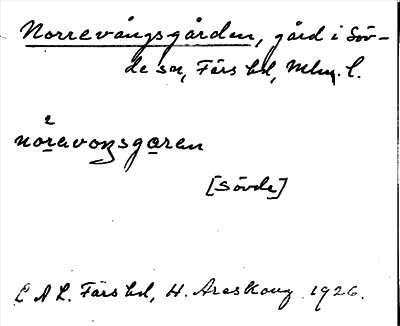 Norrevångsgården, gård i Söv-
de sn, Färs hd, Mlm. l.
2
nǫravoŋsgǫren
[Sövde]
L A L. Färs hd, H. Areskoug 1926.